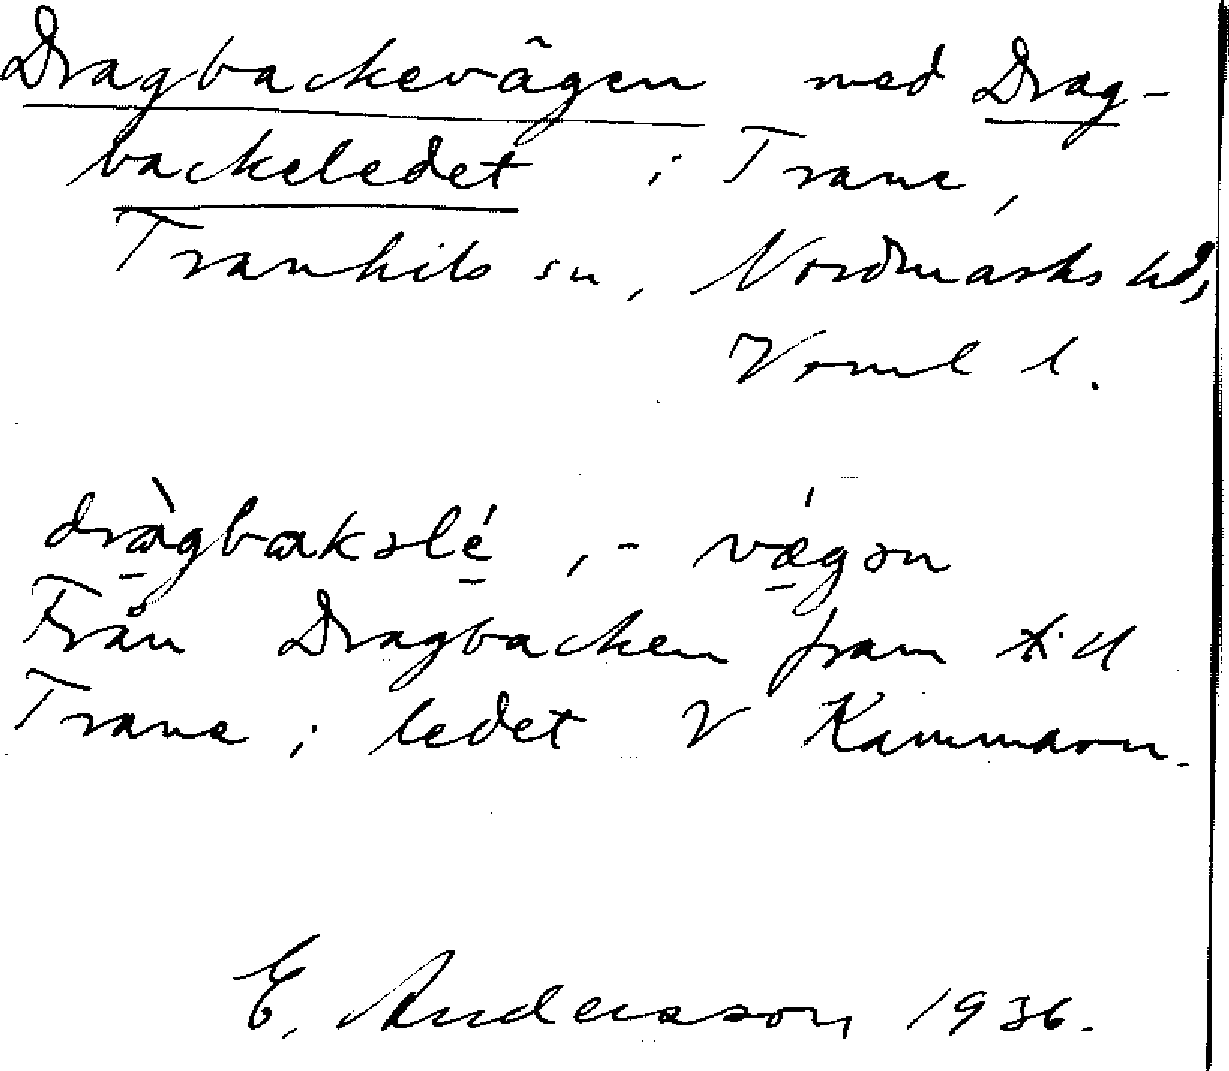 Dragbackevägen med Drag-
backeledet i Trane,
Trankils sn, Nordmarks hd,
Vrml l.
dràgbakəlé, -vǽgən
Från Dragbacken fram till
Trane; ledet V Kammarn.
E. Andersson 1936.